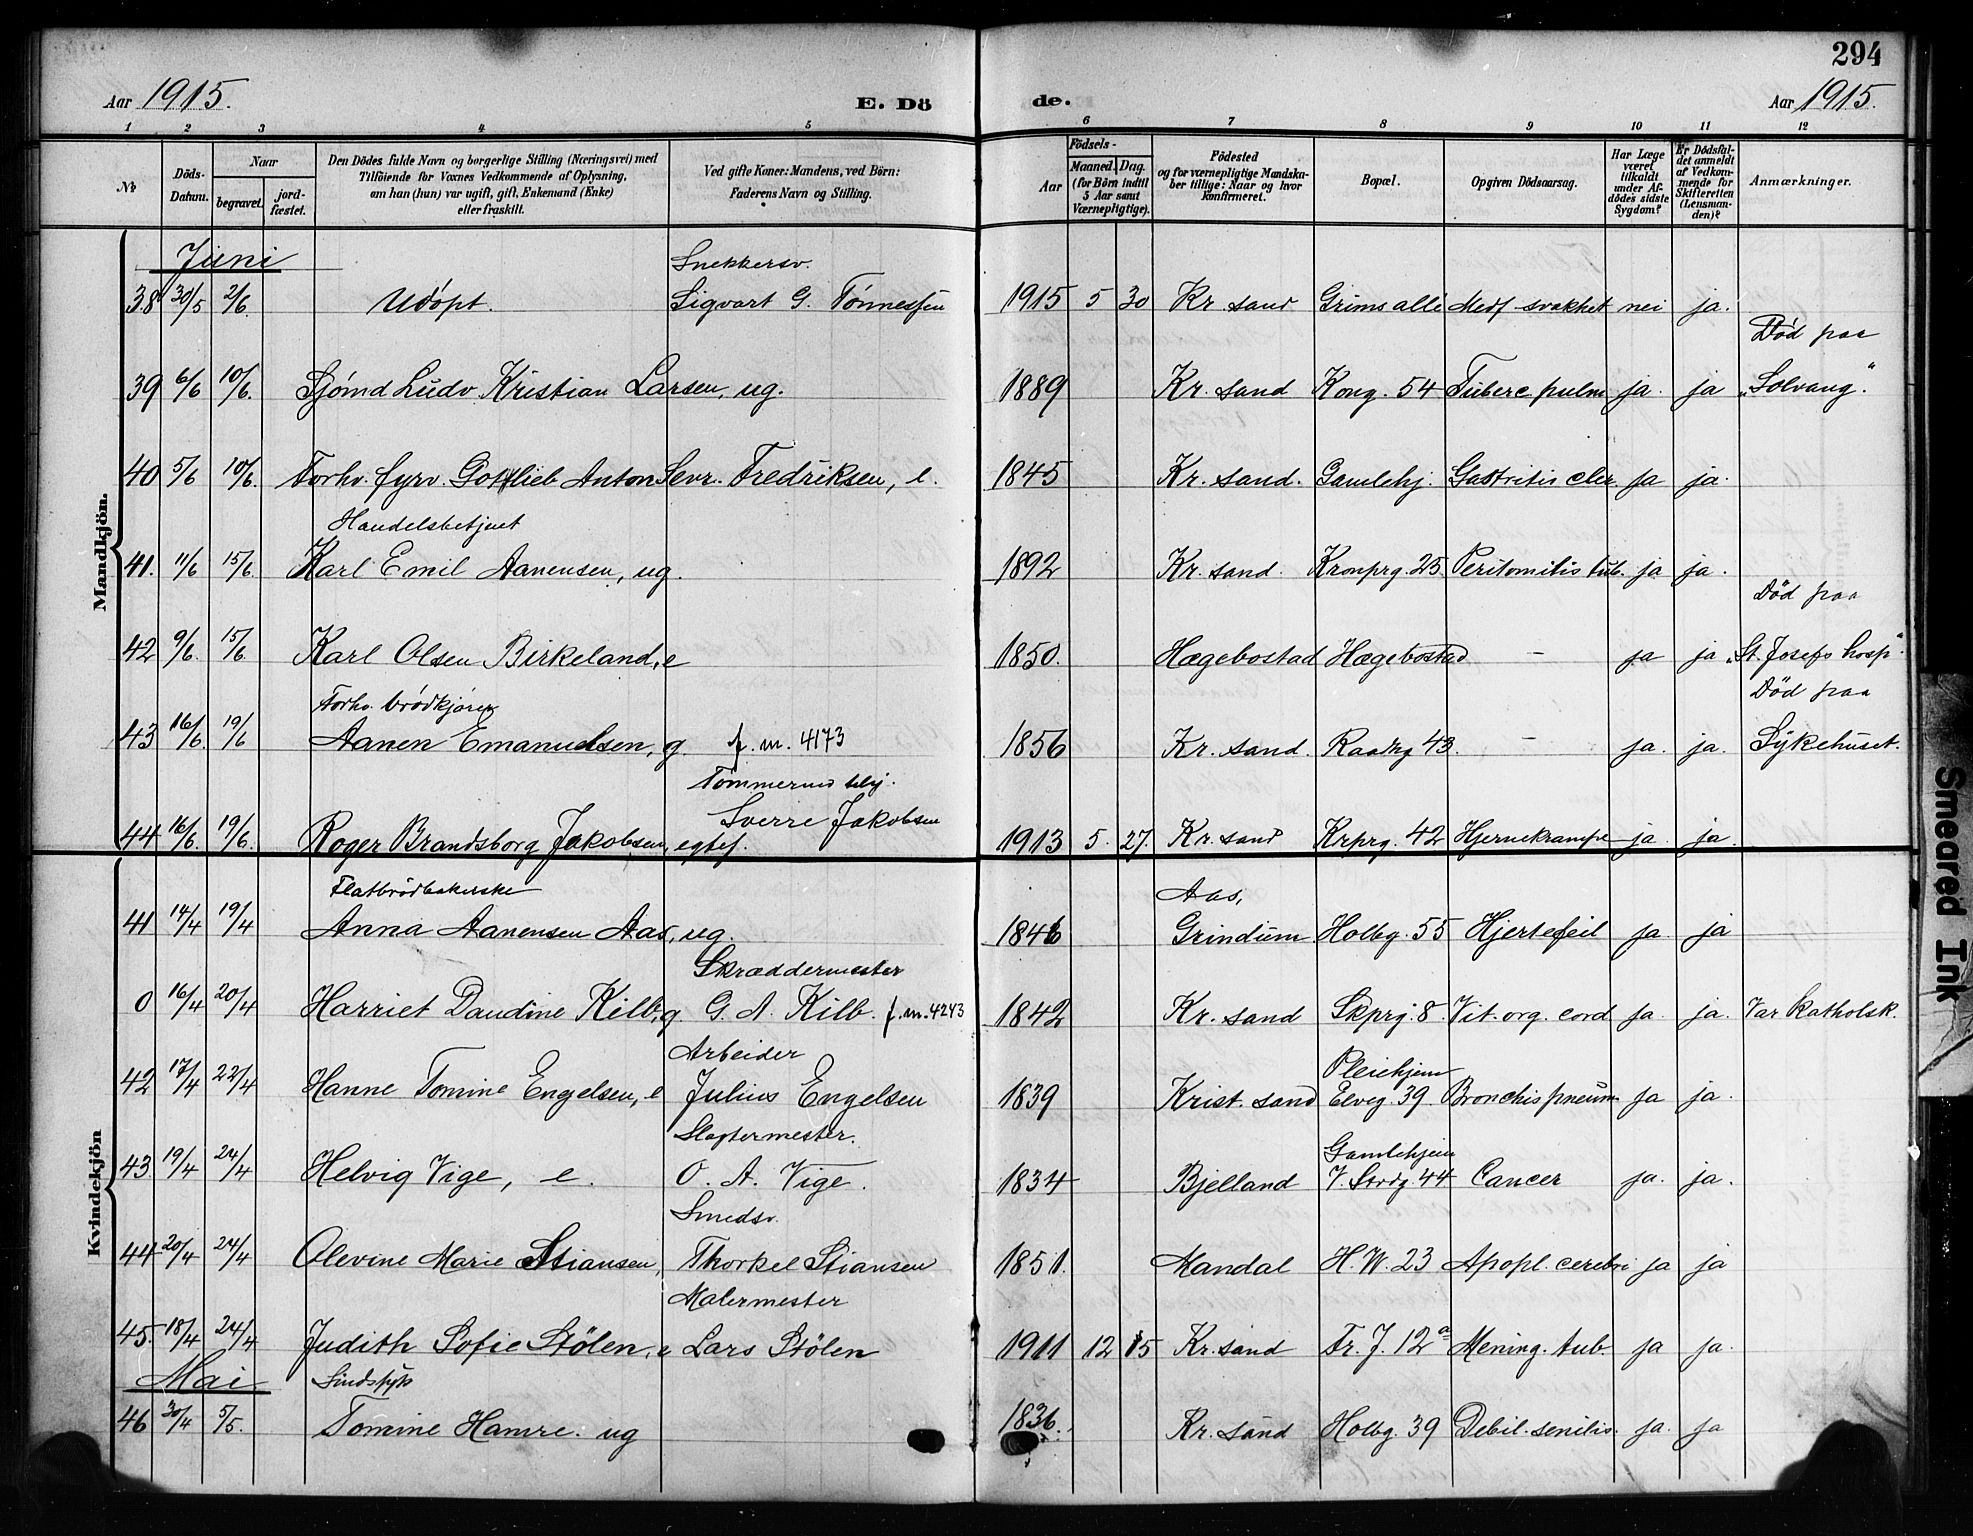 294
Aar 1915.
E. Dö
de.
Aar 1915.
1 2 3 4 5 6 7 8 9 10 11 12
No
Döds-Datum.
Naar
begravet.
jord-fæstet.
Den Dödes fulde Navn og borgerlige Stilling (Næringsvei) med
Tilföiende for Voxnes Vedkommende af Oplysning,
om han (hun) var ugift, gift, Enkemand (Enke)
eller fraskilt.
Ved gifte Koner: Mandens, ved Börn:
Faderens Navn og Stilling.
Födsels-
Aar
Maaned. Dag.
(for Börn indtil
5 Aar samt
Værnepligtige).
Födested
og for værnepligtige Mandska-
ber tillige: Naar og hvor
konfirmeret.
Bopæl.
Opgiven Dödsaarsag.
Har Læge
været
tilkaldt
under Af-
dödes sidste
Sygdom?
Er Dödsfal-
det anmeldt
af Vedkom-
mende for
Skifteretten
(Lensman-
den)?
Anmærkninger.
Mandkjön.
Juni
Snekkersv.
38 30/5 2/6. Udöpt. Sigvart G. Tönnessen 1915 5 30 Kr. sand Grims allé Medf. svakhet nei ja.
Död paa
39 6/6 10/6. Sjömd Ludv. Kristian Larsen, ug. 1889 Kr. sand Kong. 54 Tuberc. pulm ja. ja "Solvang".
40 5/6 10/6. Forhv. fyrv. Gottlieb Anton Sevr. Fredriksen, e. 1845 Kr. sand. Gamlehj. Gastritis ja ja.
Handelsbetjent
41. 11/6 15/6. Karl Emil Aanensen, ug. 1892 Kr. sand. Kronprg. 25. Peritonitis tub. ja ja.
Död paa
42 9/6. 15/6. Karl Olsen Birkeland, e 1850. Hægebostad Hægebostad - ja ja "St. Josefs hosp".
Forhv. brödkjörer
Död paa
43 16/6. 19/6 Aanen Emanuelsen, g f. m. 4173 1856 Kr. sand. Raadhg 43. - ja. ja. Sykehuset.
Tömmermd
Sverre Jakobsen
44 16/6. 19/6. Roger Brandsborg Jakobsen, egtef. 1913 5. 27. Kr. sand Krprg. 42 Hjernekrampe ja. ja.
Kvindekjön
Flatbrödbakerske
Aas,
41 14/4 19/4 Anna Aanensen Aas, ug. 1846 Grindum Holbg. 55 Hjertefeil ja. ja
Skræddermester
0 16/4 20/4 Harriet Daudine Kilb, g. G. A. Kilb. f. m. 4243 1842 Kr. sand Skprg. 8. Vit. org. cord ja. ja. Var Katholsk.
Arbeider
Pleiehjem
42 17/4 22/4 Hanne Tomine Engelsen, e Julius Engelsen 1839 Krist. sand Elveg. 39. Bronchispneum. ja ja.
Slagtermester.
Gamlehjem
43. 19/4 24/4 Helvig Vige, e. O. A. Vige. 1834 Bjelland V. Strdg 44 Cancer ja. ja.
Smedsv.
44 20/4 24/4 Olevine Marie Stiansen, Thorkel Stiansen 1851. Mandal H. W. 23 Apopl. cerebri ja ja
Malermester
45. 18/4 24/4 Judith Sofie Stölen, Lars Stölen 1911 12 15 Kr. sand Fr. J. 12a Mening. tub. ja ja.
Mai
Sindssyk
46 30/4 5/5. Tomine Hamre. ug 1836. Kr. sand Holbg. 39 Debil. senilis. ja. ja
Smeared Ink